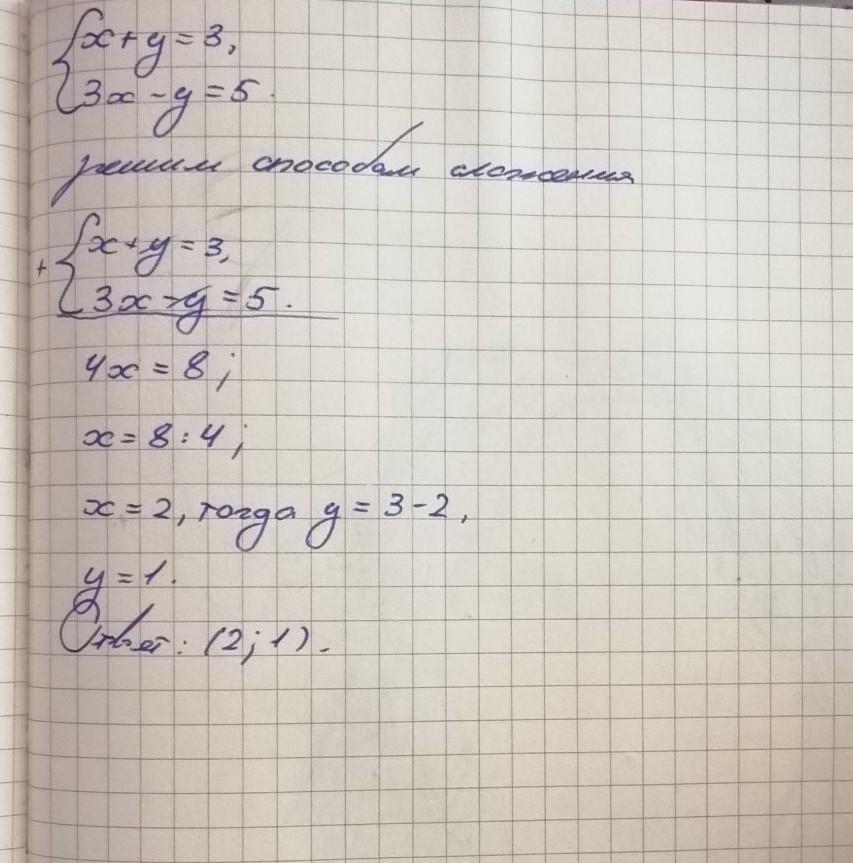 {x+y=3,
3x-y=5.
решим способом сложения
+ {x+y=3,
3x-y=5.
4x=8;
x=8:4;
x=2, тогда y=3-2,
y=1.
Ответ: (2;1).